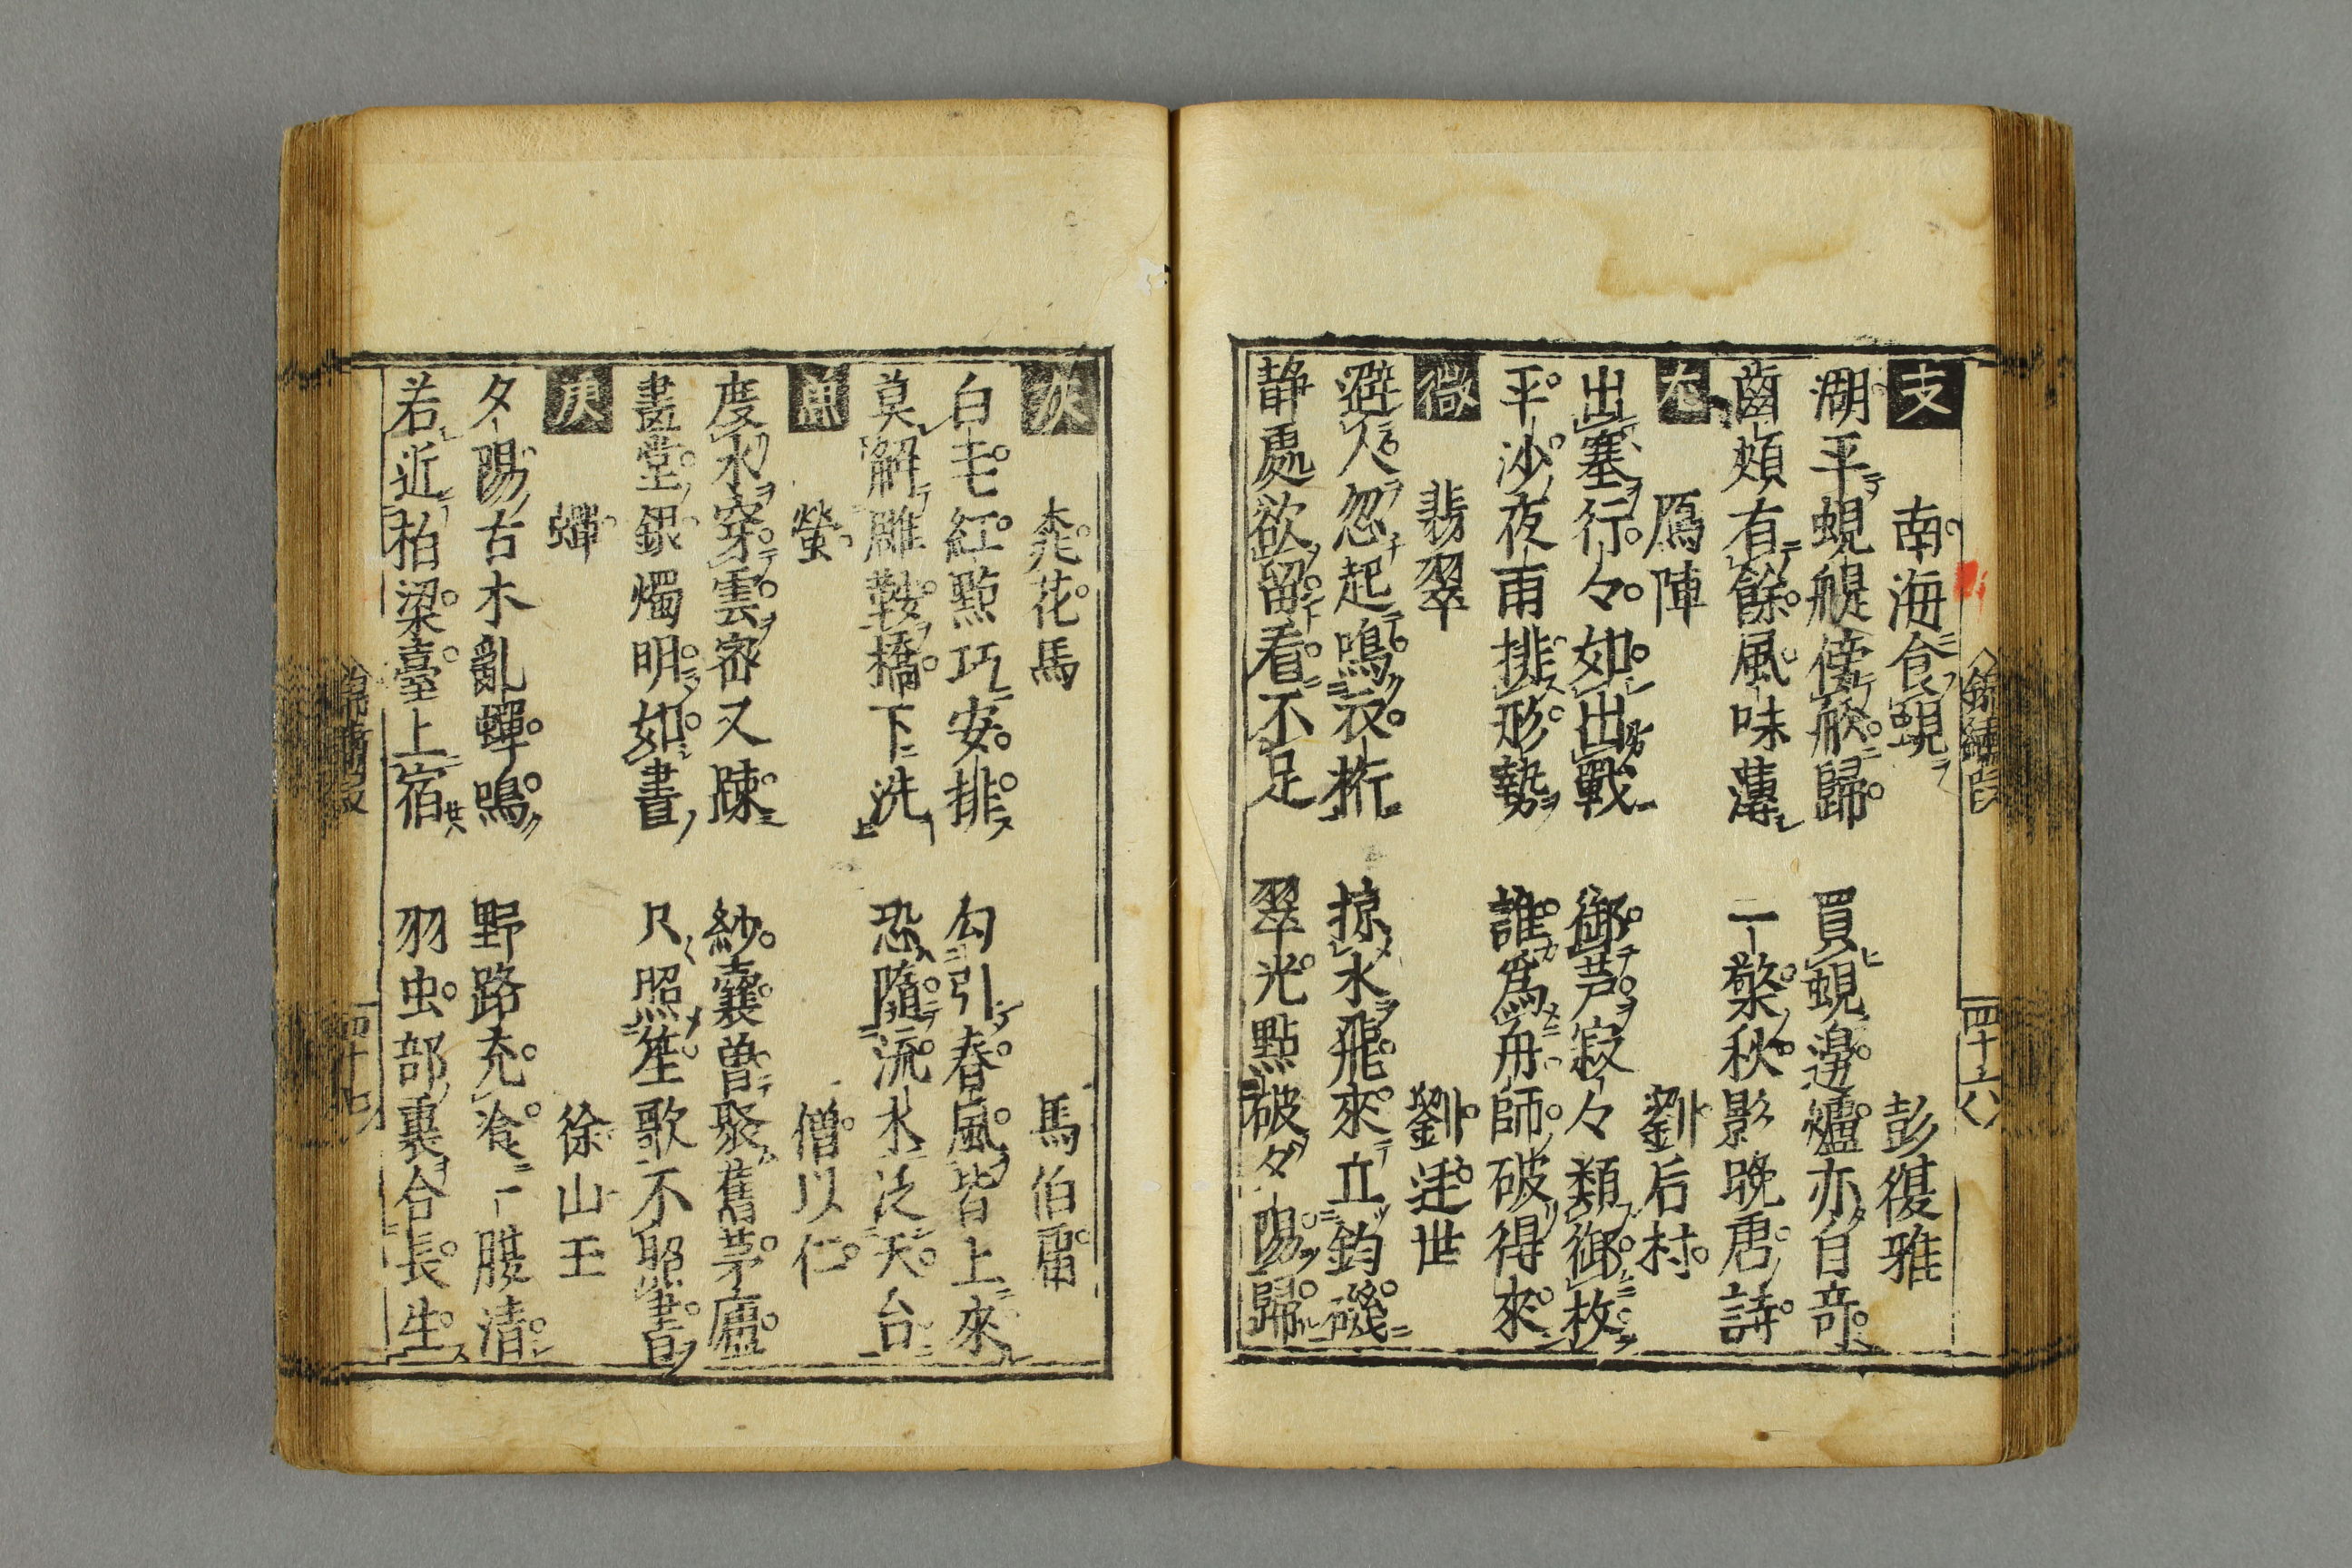 支 南海食蜆 彭復雅
湖平蜆艇傍歸 買蜆邊爐亦自奇
齒頰有餘風味薄 一檠秋影晚唐詩
鴈陣 劉后村
出塞行々如出戰 御芦寂々類御枚
平沙夜雨排形勢 誰爲舟師破得來
微 翡翠 劉逆世
避人忽起鳴衣桁 掠水飛來立釣磯
静處欲留看不足 翠光點破夕陽歸
四十六
灰 桃花馬 馬伯
白毛紅點巧安排 勾引春風皆上來
莫解雕鞍橋下洗 恐隨流水泛天台
魚 螢 僧以仁
度水穿雲密又疎 紗囊曽聚舊茅廬
畫堂銀燭明如晝 只照笙歌不照書
庚 蟬 徐山王
夕陽古木亂蟬鳴 野路充飡一腹清
若近柏梁臺上宿 羽虫部裏合長生